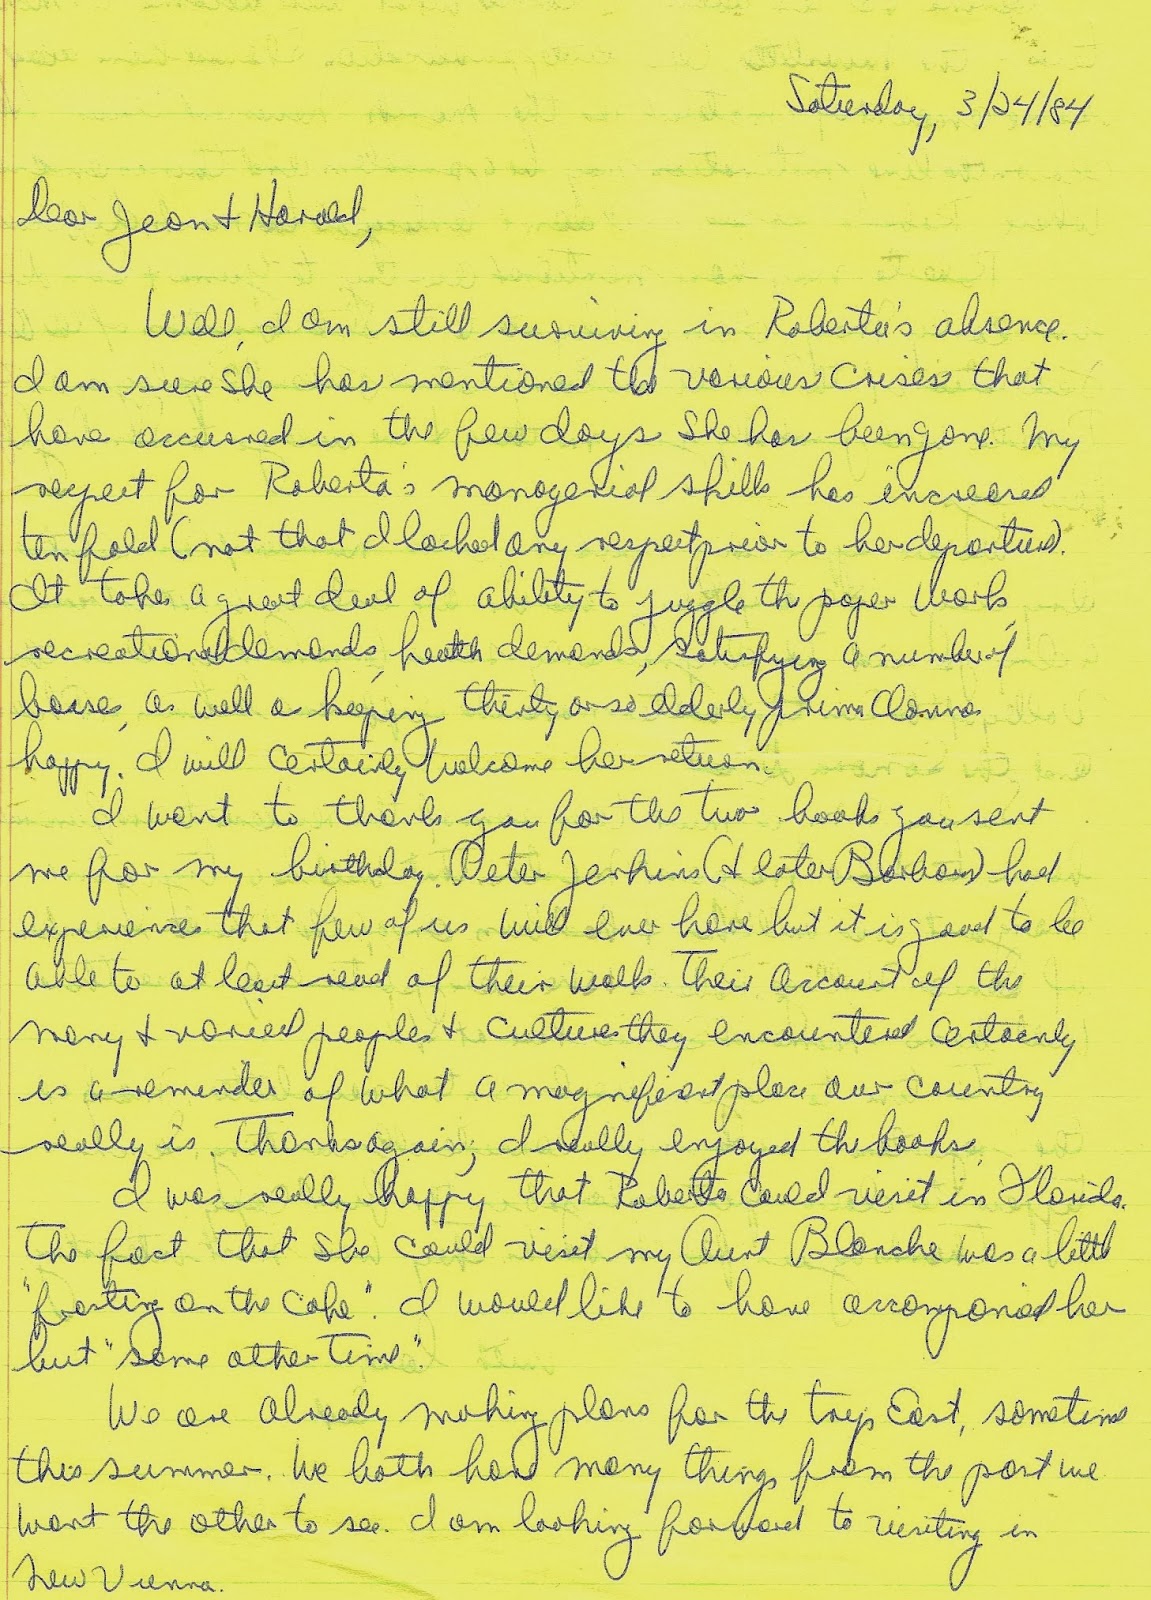 Saturday, 3/24/84
Dear Jean & Harold,
Well, I am still surviving in Roberta's absence.
I am sure she has mentioned the various crises that
have occurred in the few days she has been gone. My
respect for Roberta's managerial skills has increased
ten fold (not that I lacked any respect prior to her departure).
It takes a great deal of ability to juggle the paper work,
recreational demands, health demands, satisfying a number of
bosses, as well as keeping thirty or so elderly prima donnas
happy. I will certainly welcome her return.
I want to thank you for the two books you sent
me for my birthday. Peter Jenkins (& later Barbara) had
experiences that few of us will ever have but it is good to be
able to at least read of their walk. Their account of the
many & varied peoples & cultures they encountered certainly
is a reminder of what a magnificent place our country
really is. Thanks again; I really enjoyed the books.
I was really happy that Roberta could visit in Florida.
The fact that she could visit my Aunt Blanche was a little
"frosting on the cake". I would like to have accompanied her
but "some other time".
We are already making plans for the trip East, sometime
this summer. We both have many things from the past we
want the other to see. I am looking forward to visiting in
New Vienna.